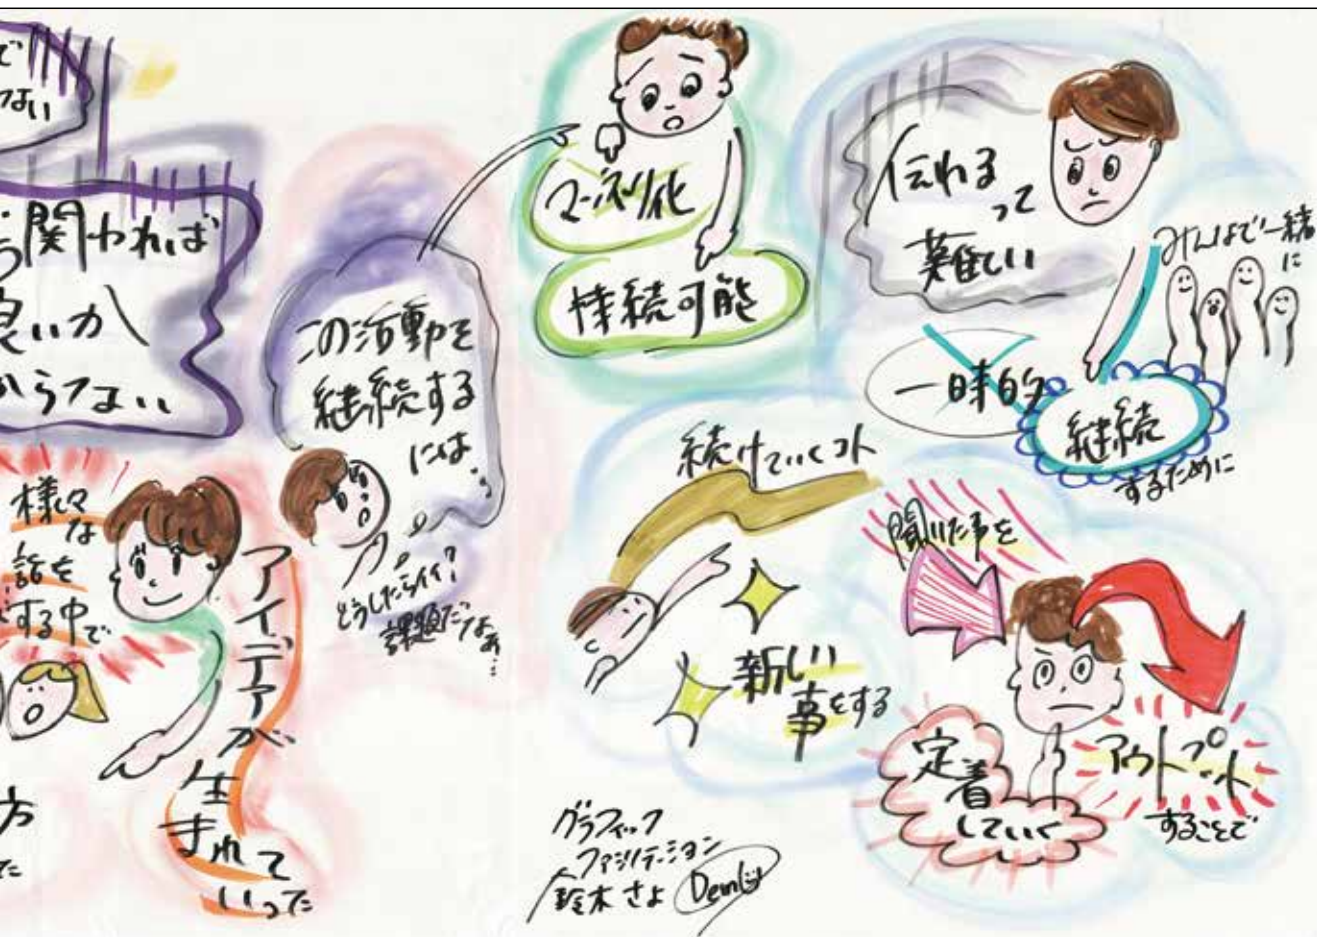 で
ない
う関われば
良いか
からない
様々
な
話を
する中で
アイデアが
生
まれて
いった
方
た
この活動を
継続する
には。
どうしたらイイ?
課題だなぁ…
マンネリ化
持続可能
伝わる
って
難しい
みんなで一緒
に
一時的
継続
するために
続けていくコト
新しい
事をする
聞いた事を
アウトプット
することで
定着
していく
グラフィック
ファシリテーション
鈴木さよ